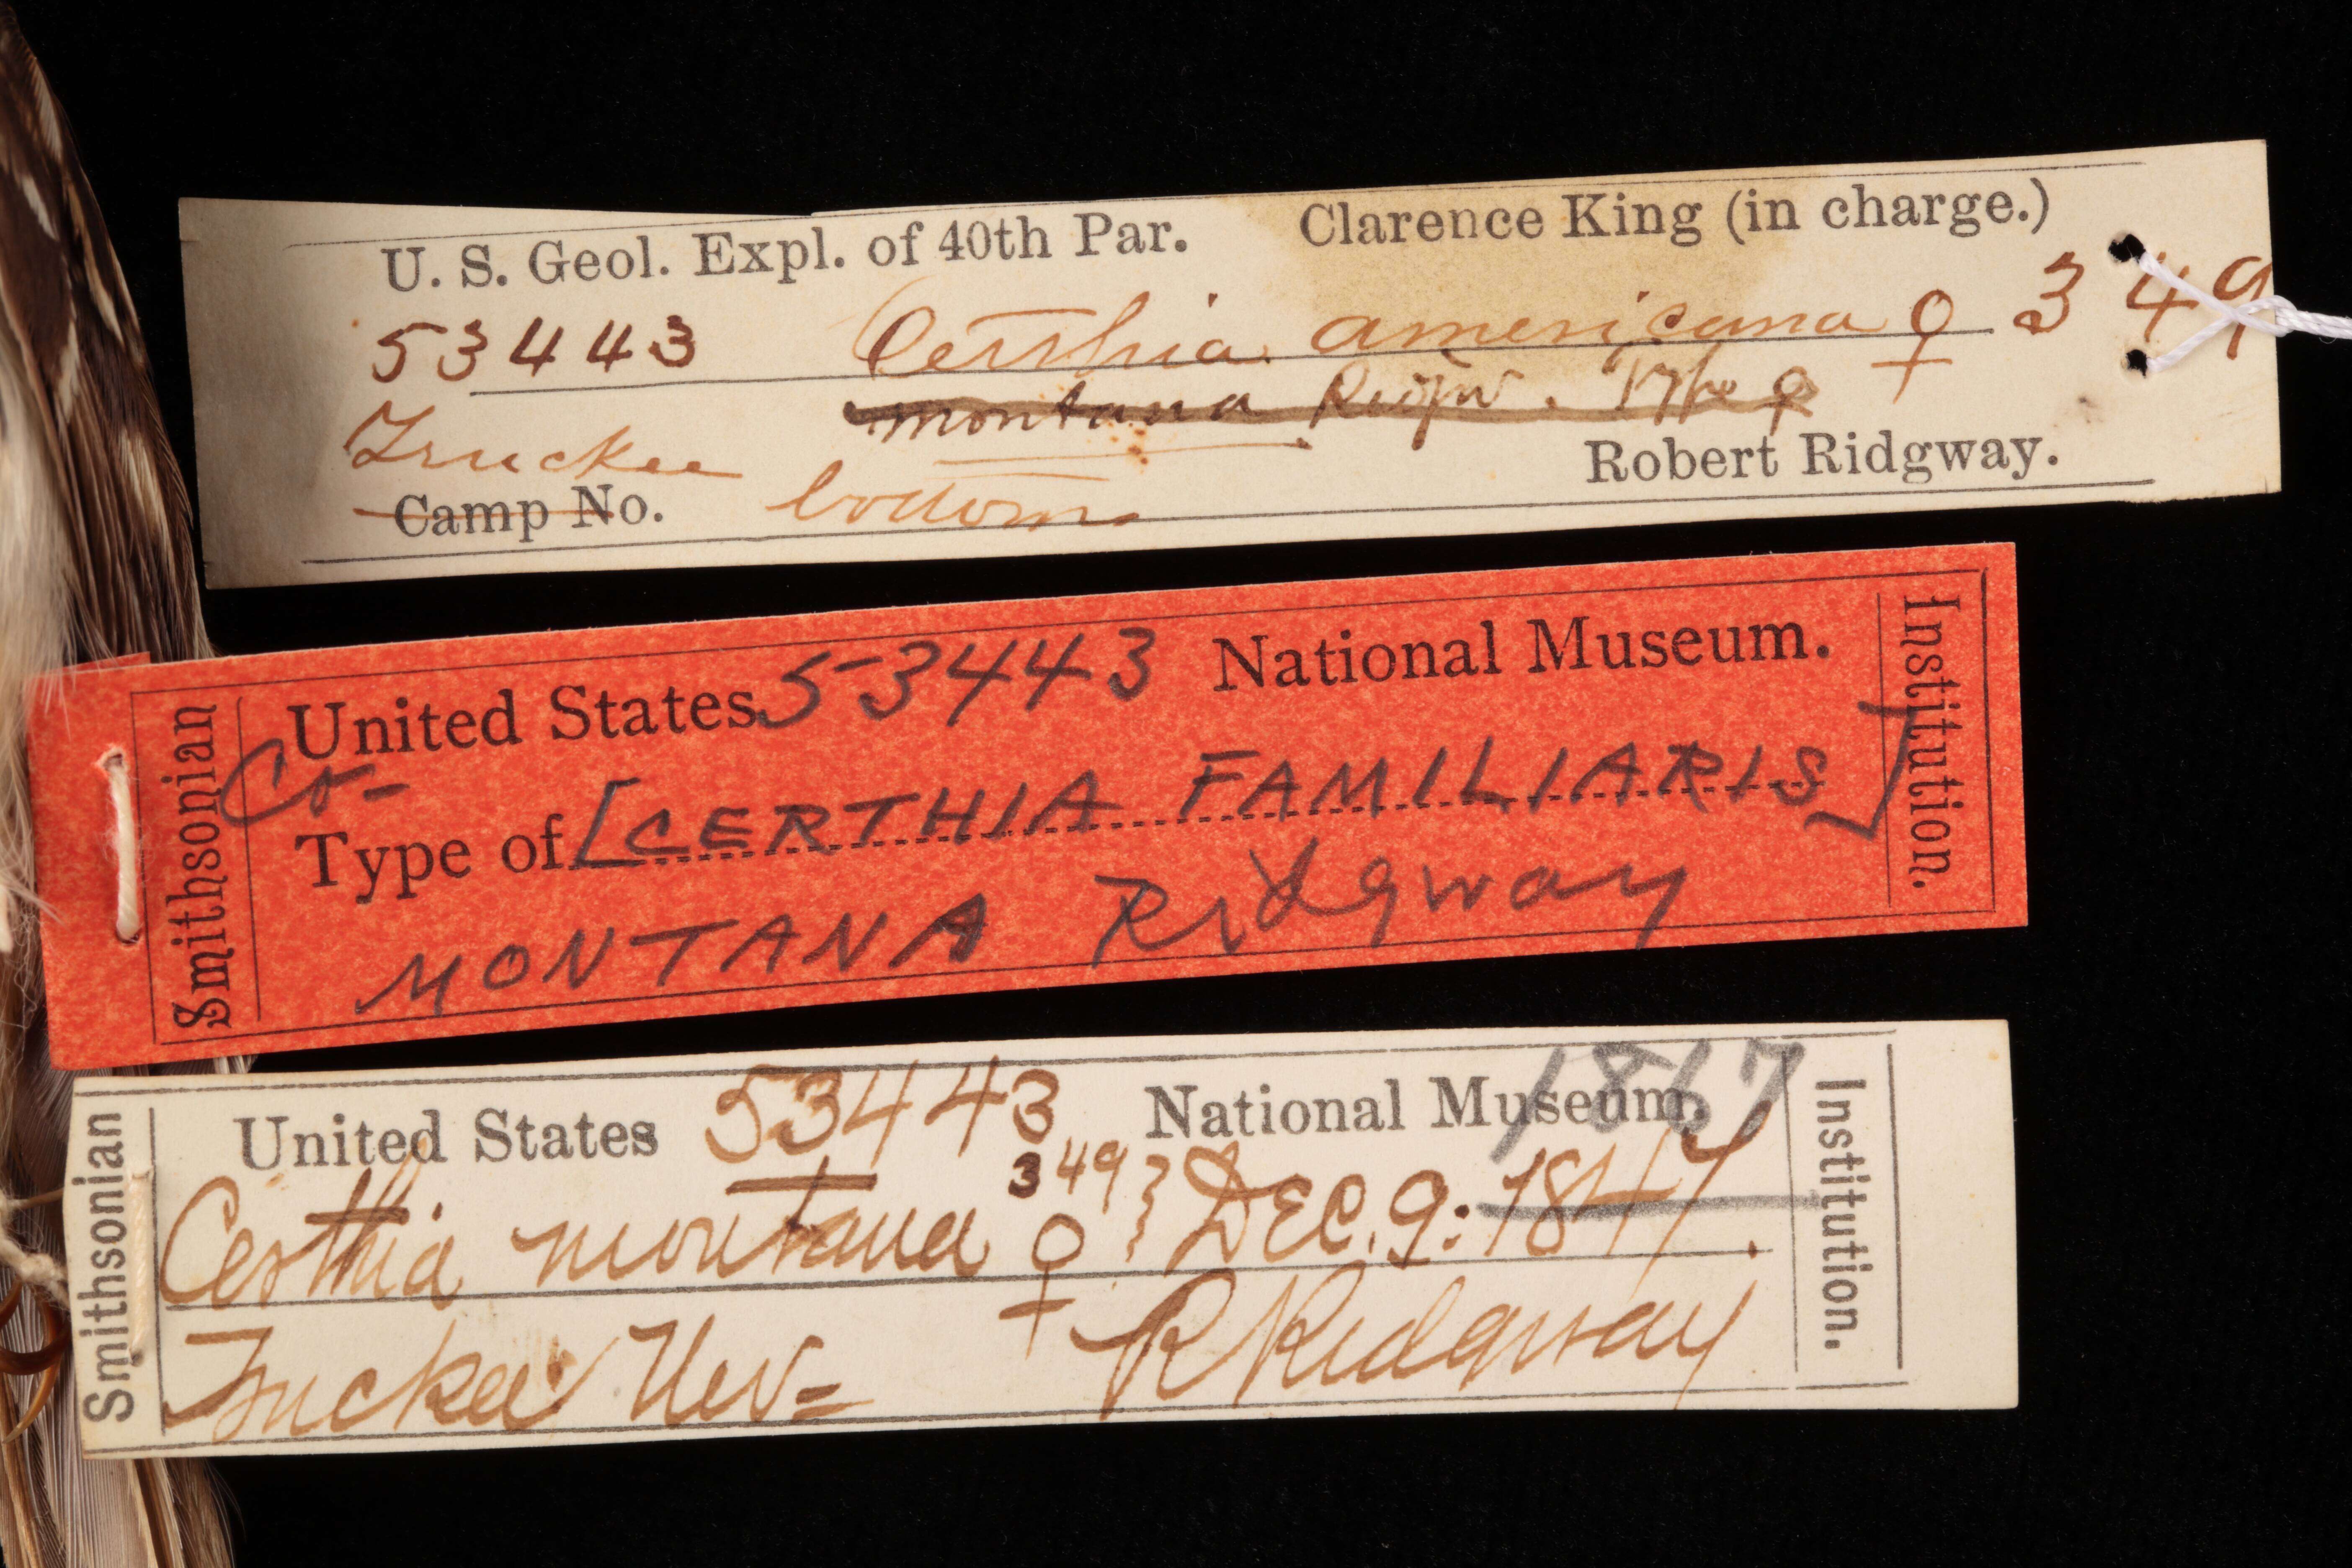 U. S. Geol. Expl. of 40th Par. Clarence King (in charge.)
53443 Certhia americana ♀ 349
montana Ridgw. Type ♀
Truckee
Robert Ridgway.
Camp No. bottom
United States 53443 National Museum.
Co-
Type of [CERTHIA FAMILIARIS]
MONTANA Ridgway
Smithsonian
Institution.
1867
United States 53443 National Museum.
349
Certhia montana ♀ } DEC. 9: 1847.
Truckee Nev= R Ridgway
Smithsonian
Institution.